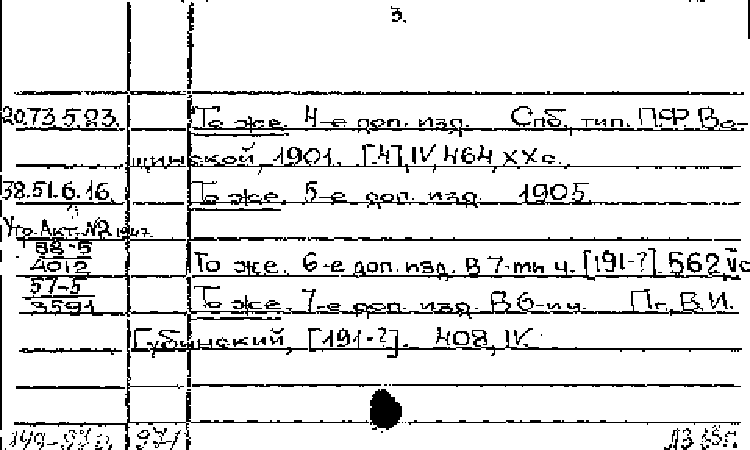 3.
20.73.5.23. То же. 4-е доп. изд. Спб, тип. П.Ф. Во-
щинской, 1901. [4], IV, 464, XX с.
38.51.6.16. То же. 5-е доп. изд. 1905
Утр. Акт. №2
38-5
2012 То же. 6-е доп. изд. В 7-ми ч. [191-?] 562, V с
57-5
3591 То же. 7-е доп. изд. В 6-ти Пг, В.И.
Губинский, [191-?]. 408, IV.